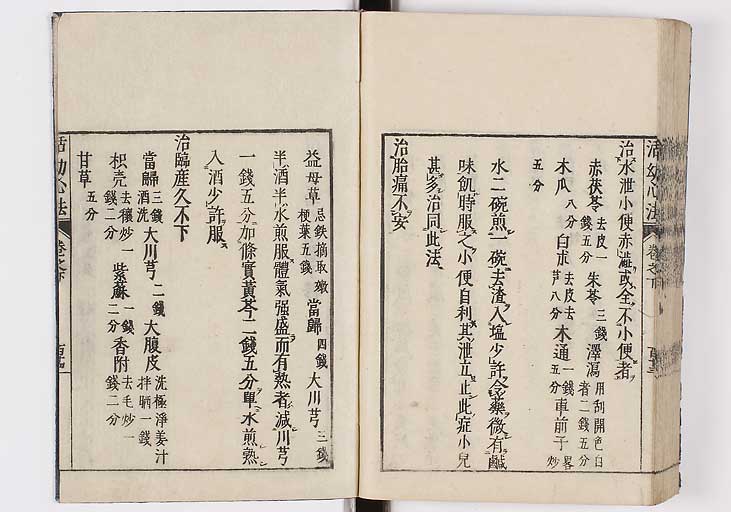 活幼心法 卷之下
治水泄小便赤澁或全不小便者
赤茯苓 去皮一錢五分 朱苓 三錢 澤瀉 用刮開色白者二錢五分
木瓜 八分 白朮 去皮去芦八分 木通 一錢五分 車前子 畧炒
五分
水二碗煎一碗去渣入塩少許令藥微有鹹
味飢時服之小便自利其泄立止此症小兒
甚多治同此法
治胎痛不安
益母草 忌鉄摘取嫩梗葉五錢 當歸 四錢 大川芎 三錢
半酒半水煎服體氣强盛而有熱者減川芎
一錢五分加條實黃芩二錢五分單水煎熟
入酒少許服
治臨產久不下
當歸 三錢酒洗 大川芎 二錢 大腹皮 洗極淨姜汁拌晒一錢
枳壳 去穰炒一錢二分 紫蘇 一錢二分 香附 去毛炒一錢二分
甘草 五分
活幼心法 卷之下